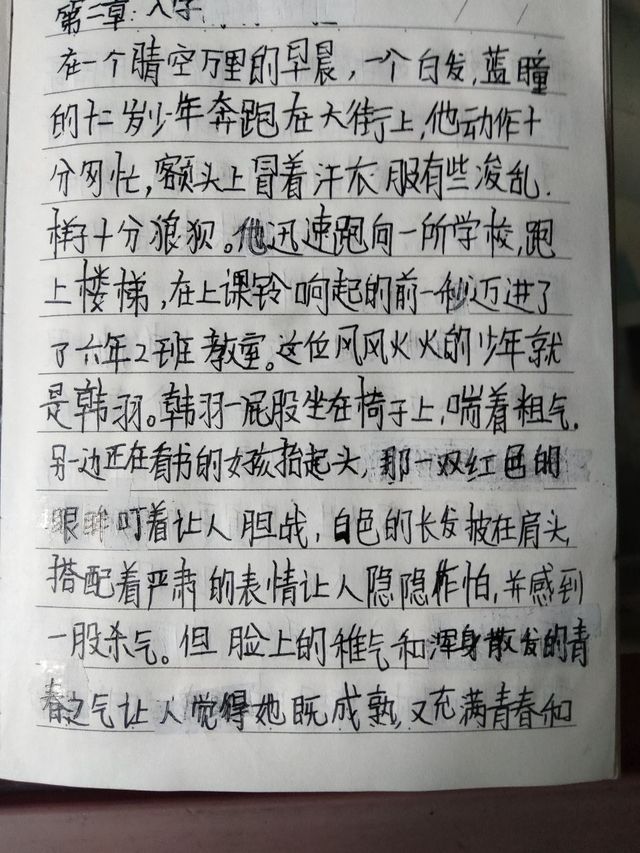 第二章：入学
在一个晴空万里的早晨，一个白发，蓝瞳
的十二岁少年奔跑在大街上，他动作十
分匆忙，额头上冒着汗衣服有些凌乱．
样子十分狼狈。他迅速跑向一所学校，跑
上楼梯，在上课铃响起的前一秒迈进了
了六年2班教室。这位风风火火的少年就
是韩羽。韩羽一屁股坐在椅子上，喘着粗气．
另一边正在看书的女孩抬起头，那一双红色的
眼眸盯着让人胆战，白色的长发披在肩头，
搭配着严肃的表情让人隐隐作怕，并感到
一股杀气。但脸上的稚气和浑身散发的青
春之气让人觉得她既成熟，又充满青春和